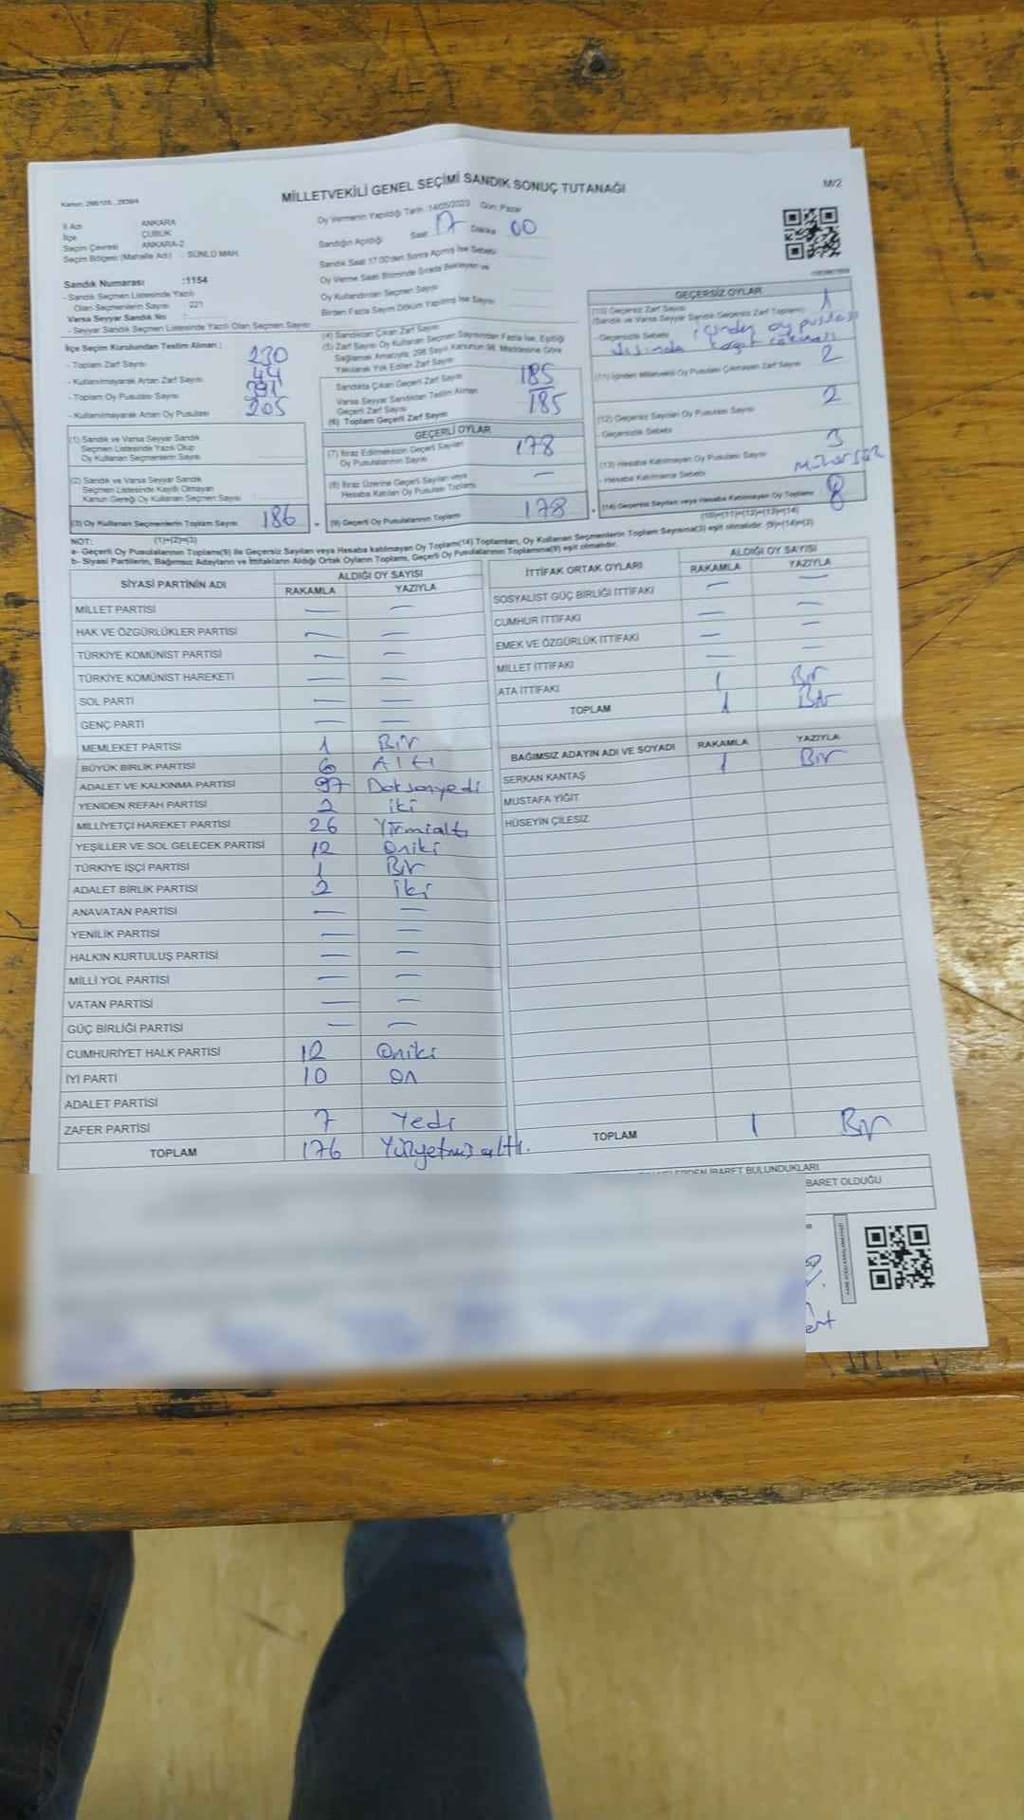 MİLLETVEKİLİ GENEL SEÇİMİ SANDIK SONUÇ TUTANAĞI
M/2
İl Adı ANKARA
İlçe ÇUBUK
Seçim Çevresi ANKARA-2
Seçim Bölgesi (Mahalle Adı) : SÜNLÜ MAH.
Oy Vermenin Yapıldığı Tarih :14/05/2023 Gün: Pazar
Sandığın Açıldığı Saat 17 Dakika 00
Sandık Saat 17:00'den Sonra Açılmış İse Sebebi
Oy Verme Saati Bitiminde Sırada Bekleyen ve
Oy Kullandırılan Seçmen Sayısı
Birden Fazla Sayım Döküm Yapılmış İse Sayısı
Sandık Numarası :1154
- Sandık Seçmen Listesinde Yazılı
Olan Seçmenlerin Sayısı : 221
Varsa Seyyar Sandık No :
- Seyyar Sandık Seçmen Listesinde Yazılı Olan Seçmen Sayısı
İlçe Seçim Kurulundan Teslim Alınan :
- Toplam Zarf Sayısı 230
- Kullanılmayarak Artan Zarf Sayısı 44
- Toplam Oy Pusulası Sayısı 391
- Kullanılmayarak Artan Oy Pusulası 205
(1) Sandık ve Varsa Seyyar Sandık
Seçmen Listesinde Yazılı Olup
Oy Kullanan Seçmenlerin Sayısı
(2) Sandık ve Varsa Seyyar Sandık
Seçmen Listesinde Kayıtlı Olmayan
Kanun Gereği Oy Kullanan Seçmen Sayısı
(3) Oy Kullanan Seçmenlerin Toplam Sayısı 186
(4) Sandıktan Çıkan Zarf Sayısı
(5) Zarf Sayısı Oy Kullanan Seçmen Sayısından Fazla İse, Eşitliği
Sağlamak Amacıyla, 298 Sayılı Kanunun 98. Maddesine Göre
Yakılarak Yok Edilen Zarf Sayısı
Sandıkta Çıkan Geçerli Zarf Sayısı 185
Varsa Seyyar Sandıktan Teslim Alınan
Geçerli Zarf Sayısı
(6) Toplam Geçerli Zarf Sayısı 185
GEÇERLİ OYLAR
(7) İtiraz Edilmeksizin Geçerli Sayılan
Oy Pusulalarının Sayısı 178
(8) İtiraz Üzerine Geçerli Sayılan veya
Hesaba Katılan Oy Pusulası Toplamı —
(9) Geçerli Oy Pusulalarının Toplamı 178
GEÇERSİZ OYLAR
(10) Geçersiz Zarf Sayısı 1
(Sandık ve Varsa Seyyar Sandık Geçersiz Zarf Toplamı)
- Geçersizlik Sebebi içinden oy pusulası
dışında
(11) İçinden Milletvekili Oy Pusulası Çıkmayan Zarf Sayısı 2
(12) Geçersiz Sayılan Oy Pusulası Sayısı 2
- Geçersizlik Sebebi
(13) Hesaba Katılmayan Oy Pusulası Sayısı 3
- Hesaba Katılmama Sebebi mühürsüz
(14) Geçersiz Sayılan veya Hesaba Katılmayan Oy Toplamı 8
NOT: (1)+(2)=(3) (10)+(11)+(12)+(13)=(14)
a- Geçerli Oy Pusulalarının Toplamı(9) ile Geçersiz Sayılan veya Hesaba katılmayan Oy Toplamı(14) Toplamları, Oy Kullanan Seçmenlerin Toplam Sayısına(3) eşit olmalıdır. (9)+(14)=(3)
b- Siyasi Partilerin, Bağımsız Adayların ve İttifakların Aldığı Ortak Oyların Toplamı, Geçerli Oy Pusulalarının Toplamına(9) eşit olmalıdır.
SİYASİ PARTİNİN ADI ALDIĞI OY SAYISI
RAKAMLA YAZIYLA
MİLLET PARTİSİ — —
HAK VE ÖZGÜRLÜKLER PARTİSİ — —
TÜRKİYE KOMÜNİST PARTİSİ — —
TÜRKİYE KOMÜNİST HAREKETİ — —
SOL PARTİ — —
GENÇ PARTİ — —
MEMLEKET PARTİSİ 1 Bir
BÜYÜK BİRLİK PARTİSİ 6 Altı
ADALET VE KALKINMA PARTİSİ 97 Doksanyedi
YENİDEN REFAH PARTİSİ 2 iki
MİLLİYETÇİ HAREKET PARTİSİ 26 Yirmialtı
YEŞİLLER VE SOL GELECEK PARTİSİ 12 Oniki
TÜRKİYE İŞÇİ PARTİSİ 1 Bir
ADALET BİRLİK PARTİSİ 2 iki
ANAVATAN PARTİSİ — —
YENİLİK PARTİSİ — —
HALKIN KURTULUŞ PARTİSİ — —
MİLLİ YOL PARTİSİ — —
VATAN PARTİSİ — —
GÜÇ BİRLİĞİ PARTİSİ — —
CUMHURİYET HALK PARTİSİ 12 Oniki
İYİ PARTİ 10 On
ADALET PARTİSİ
ZAFER PARTİSİ 7 Yedi
TOPLAM 176 Yüzyetmişaltı.
İTTİFAK ORTAK OYLARI ALDIĞI OY SAYISI
RAKAMLA YAZIYLA
SOSYALİST GÜÇ BİRLİĞİ İTTİFAKI — —
CUMHUR İTTİFAKI — —
EMEK VE ÖZGÜRLÜK İTTİFAKI — —
MİLLET İTTİFAKI — —
ATA İTTİFAKI 1 Bir
TOPLAM 1 Bir
BAĞIMSIZ ADAYIN ADI VE SOYADI RAKAMLA YAZIYLA
SERKAN KANTAŞ 1 Bir
MUSTAFA YİĞİT
HÜSEYİN ÇİLESİZ
TOPLAM 1 Bir
İBARET BULUNDUKLARI
BARET OLDUĞU